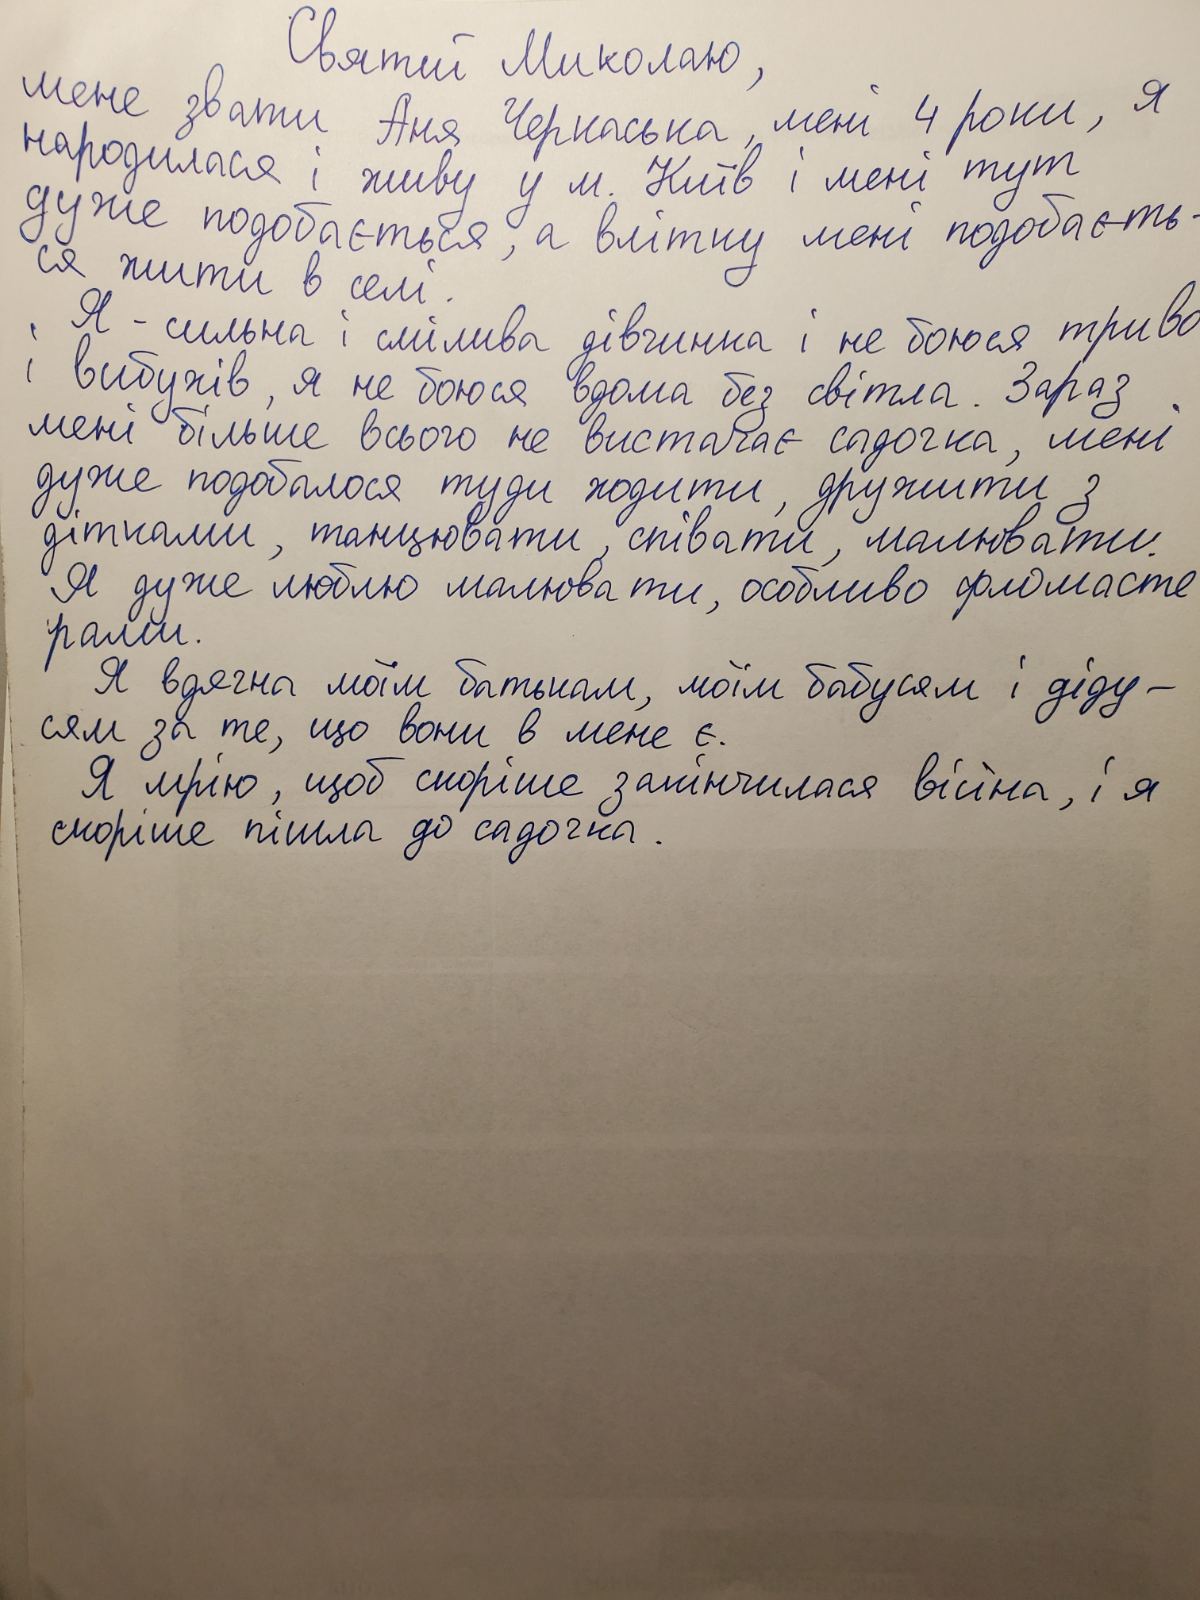 Святий Миколаю,
мене звати Аня Черкаська, мені 4 роки, я
народилася і живу у м. Київ і мені тут
дуже подобається, а влітку мені подобаєть-
ся жити в селі.
Я - сильна і смілива дівчинка і не боюся триво
і вибухів, я не боюся вдома без світла. Зараз
мені більше всього не вистачає садочка, мені
дуже подобалося туди ходити, дружити з
дітками, танцювати, співати, малювати.
Я дуже люблю малювати, особливо фломасте
рами.
Я вдячна моїм батькам, моїм бабусям і діду-
сям за те, що вони в мене є.
Я мрію, щоб скоріше закінчилася війна, і я
скоріше пішла до садочка.